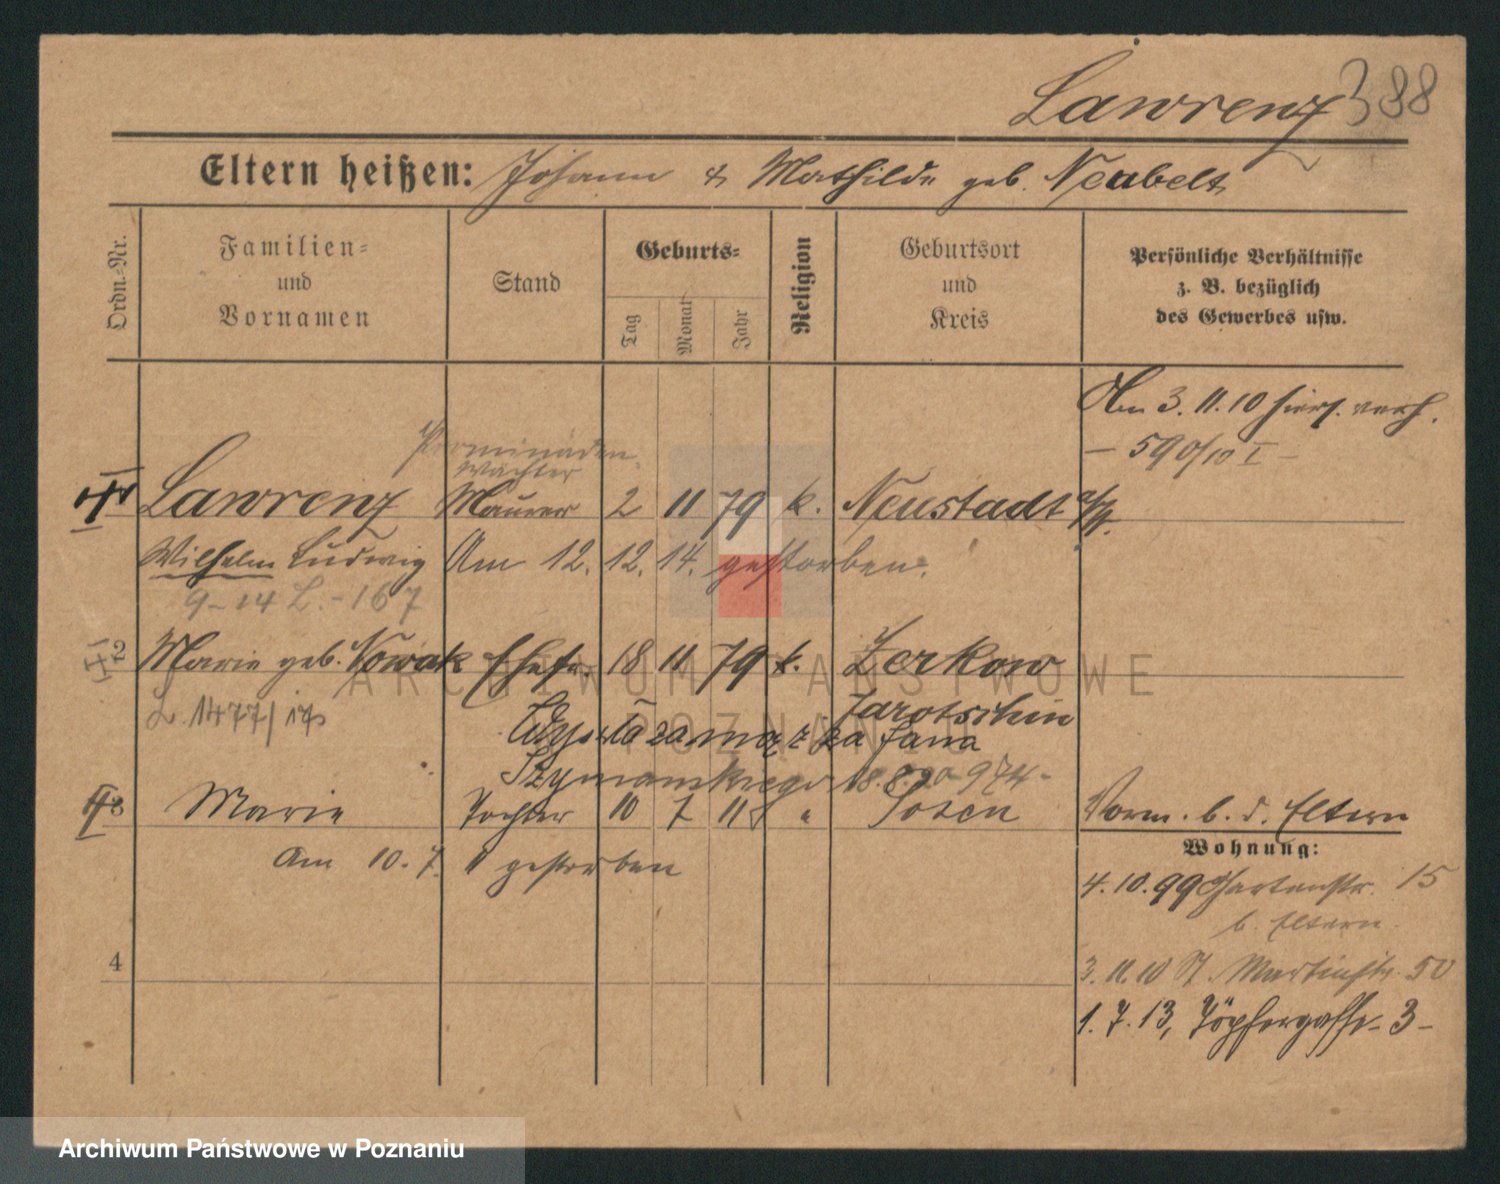 Lawrenz 388
Eltern heißen: Johann & Mathilde geb. Neubelt
Ordn.=Nr.
Familien=
und
Vornamen
Stand
Geburts=
Tag
Monat
Jahr
Religion
Geburtsort
und
Kreis
Persönliche Verhältnisse
z. B. bezüglich
des Gewerbes usw.
Am 3. 11. 10 hiers. verh.
– 590/10 I –
wächter
Lawrenz Maurer 2 11 79 k. Neustadt a/W.
Wilhelm Ludwig Am 12. 12. 14. gestorben.
9–14 L. – 167
2 Marie geb. Nowak Ehefr. 18 11 79 k. Zerkow
L. 1477/17 Jarotschin
za mąż za Jana
Szymańskiego 18. 8. 20 974 –
3 Marie Tochter 10 7 11 " Posen Vorm. b. d. Eltern
Wohnung:
Am 10. 7. 11 gestorben
4. 10. 99 Gartenstr. 15
b. Eltern
4
3. 11. 10 St. Martinstr. 50
1. 7. 13, Töpfergasse – 3 –
ARCHIWUM PAŃSTWOWE
POZNAŃ
Archiwum Państwowe w Poznaniu